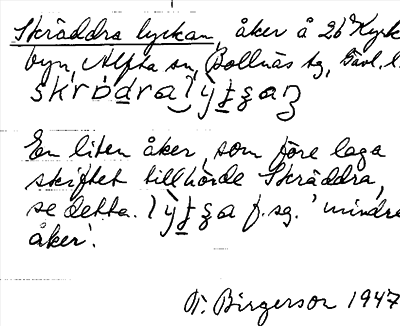 Skräddra lyckan, åker å 26 Kyrk
byn, Alfta sn, Bollnäs tg, Gävl. l.
En liten åker, som före laga
skiftet tillhörde Skräddra,
se detta. f. sg. 'mindre
åker'.
N. Birgerson 1947